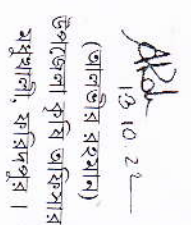 13.10.22
(আলভীর রহমান)
উপজেলা কৃষি অফিসার
মধুখালি, ফরিদপুর।